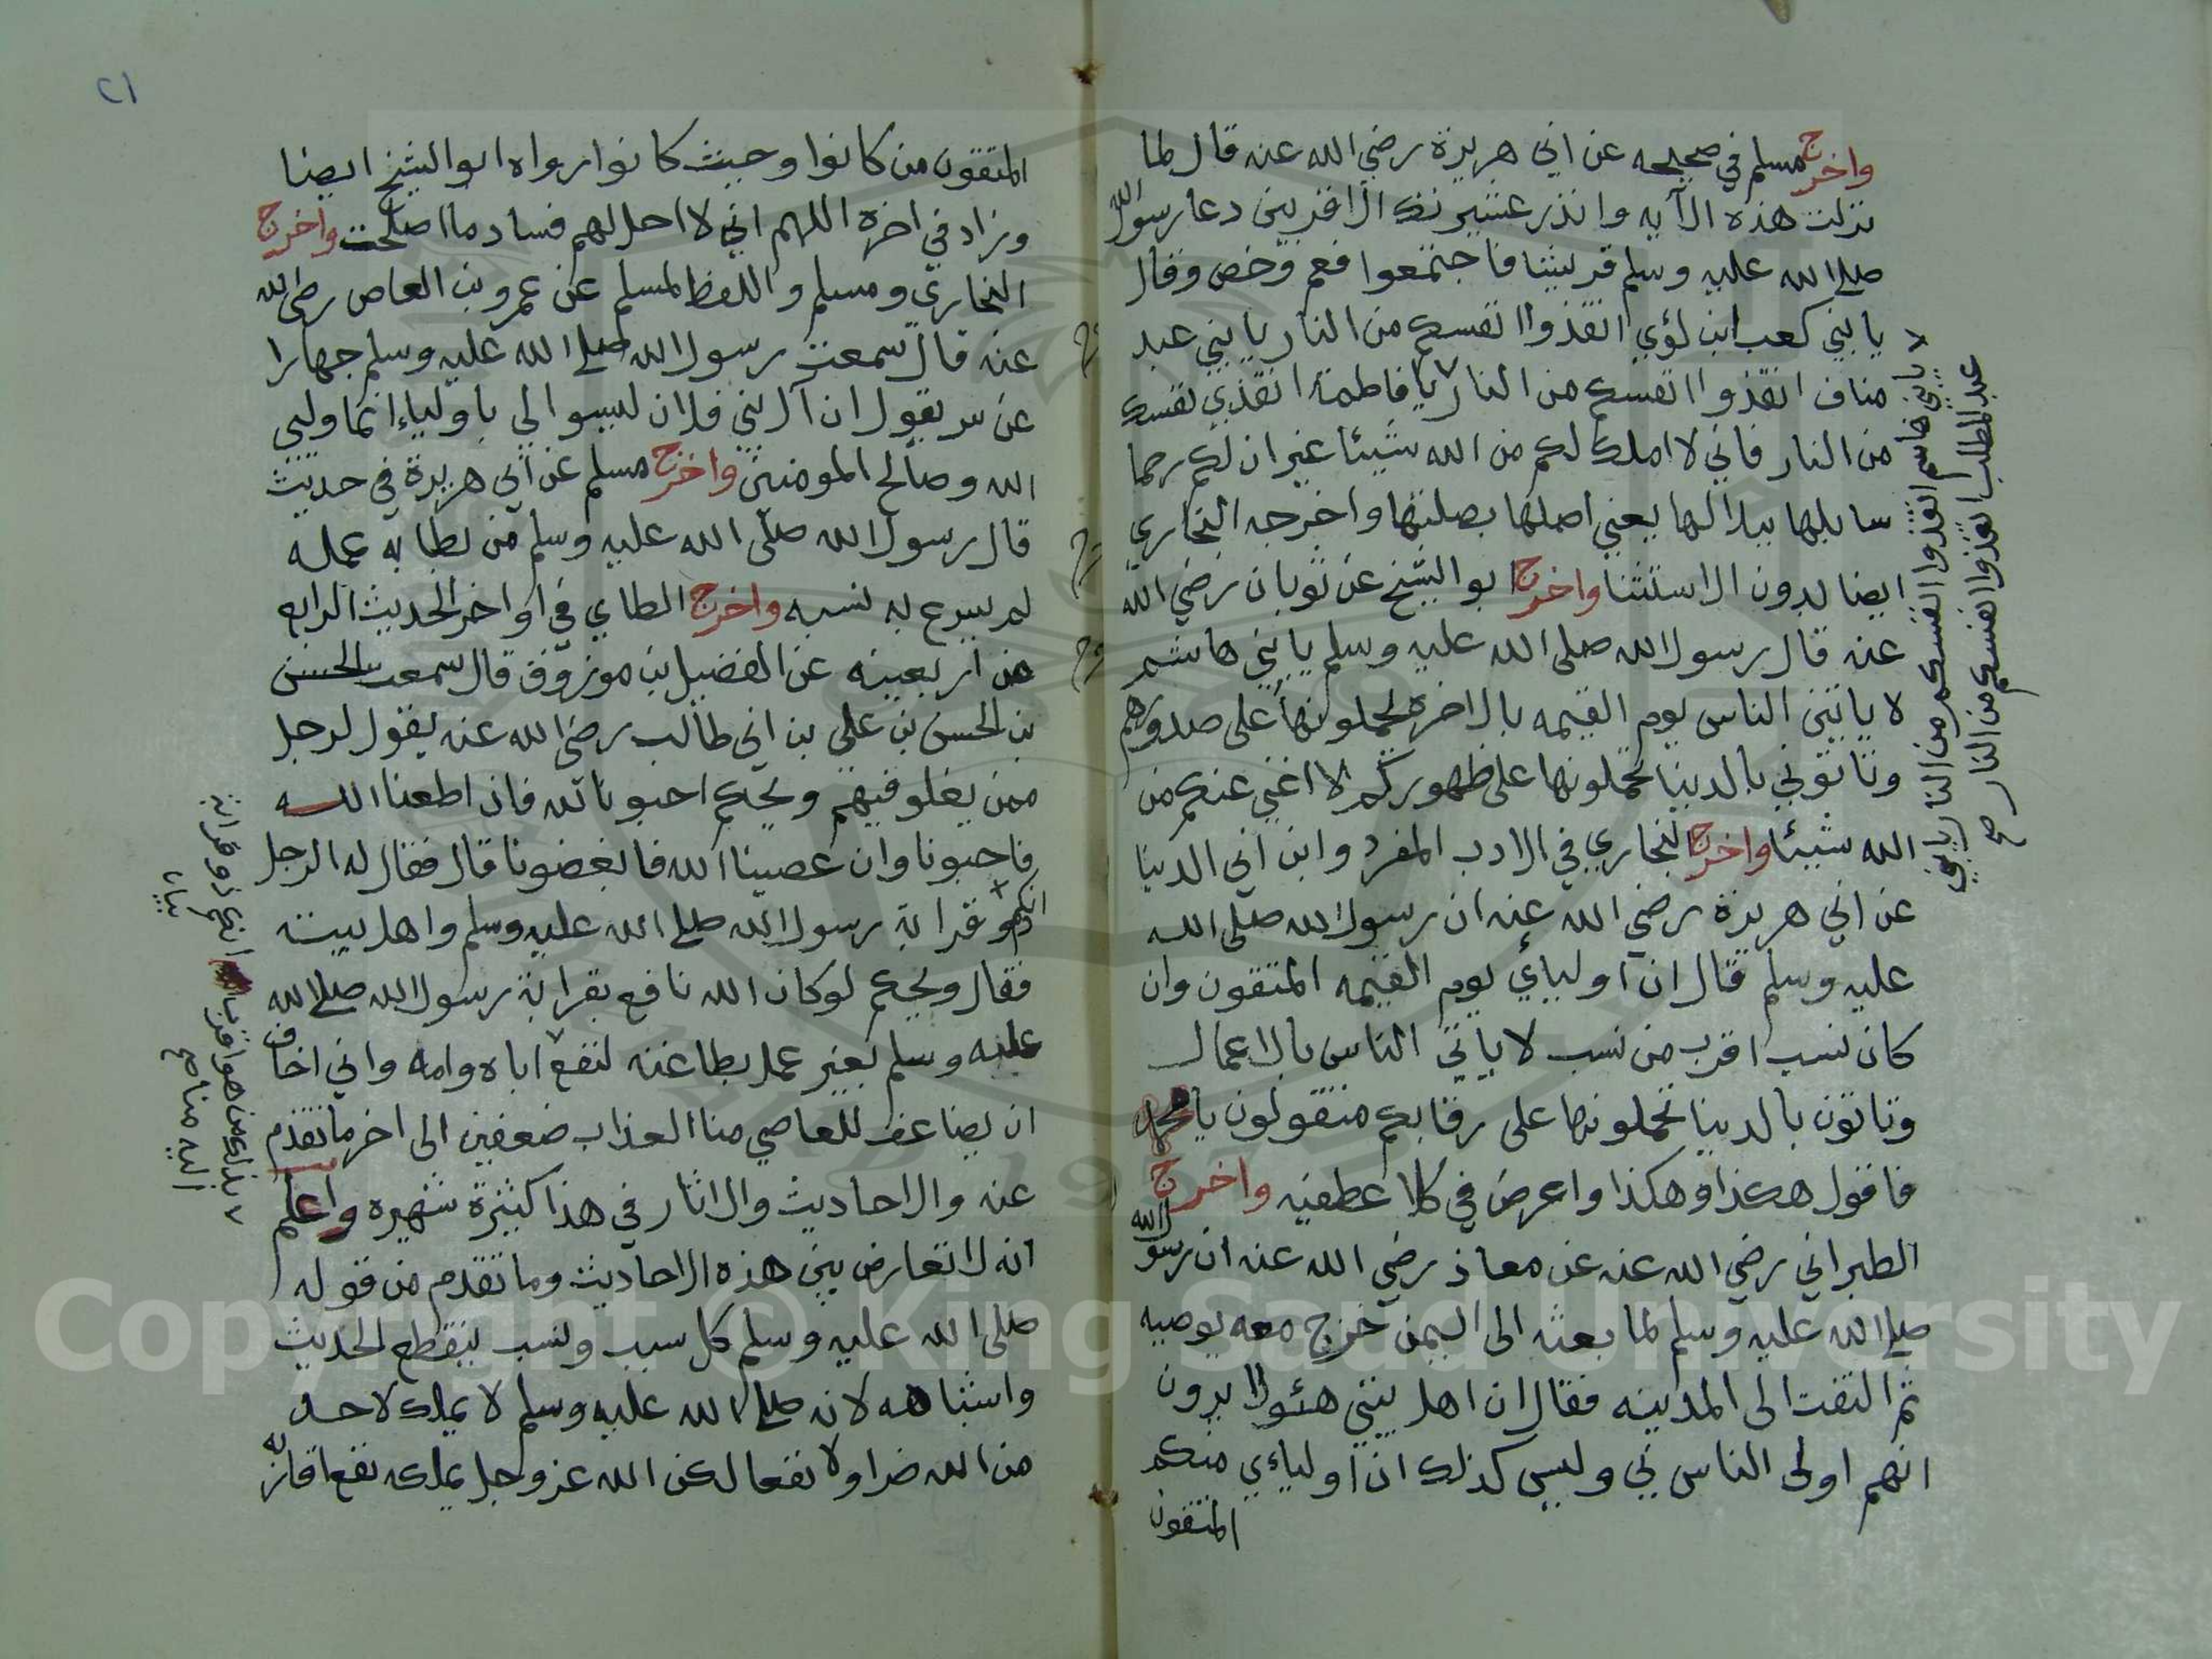 واخرج مسلم في صحيحه عن ابي هريرة رضي الله عنه قال لما
نزلت هذه الآيه وانذر عشيرتك الاقربين دعا رسول الله
صلى الله عليه وسلم قريشا فاجتمعوا فعم وخص وقال
يا بني كعب ابن لؤي انقذوا انفسكم من النار يا بني عبد
مناف انقذوا انفسكم من النار يا فاطمة انقذي نفسك
من النار فاني لا املك لكم من الله شيئا غير ان لكم رحما
سابلها ببلالها يعني اصلها بصلتها واخرجه البخاري
ايضا بدون الاستثنا واخرج ابو الشيخ عن ثوبان رضي الله
عنه قال رسول الله صلى الله عليه وسلم يا بني هاشم
لا ياتين الناس يوم القيمه بالاخرة يحملونها على صدورهم
وتاتوني بالدينا تحملونها على ظهوركم لا اغني عنكم من
الله شيئا واخرج البخاري في الادب المفرد وابن ابي الدينا
عن ابي هريرة رضي الله عنه ان رسول الله صلى الله
عليه وسلم قال ان اوليائي يوم القيمه المتقون وان
كان نسب اقرب من نسب لا ياتي الناس بالاعمال
وتاتون بالدينا تحملونها على رقابكم فتقولون يا محمد
فاقول هكذا وهكذا واعرض في كلا عطفيه واخرج
الطبراني رضي الله عنه عن معاذ رضي الله عنه ان رسول الله
صلى الله عليه وسلم لما بعثه الى اليمن خرج معه يوصيه
ثم التفت الى المدينه فقال ان اهل بيتي هئولا يرون
انهم اولى الناس بي وليس كذلك ان اوليائي منكم
المتقون
يا بني هاشم انقذوا انفسكم من النار يا بني
عبد المطلب انقذوا انفسكم من النار صح
٢١
المتقون من كانوا وحيث كانوا رواه ابو الشيخ ايضا
وزاد في اخره اللهم اني لا احل لهم فساد ما اصلحت واخرج
البخاري ومسلم واللفظ لمسلم عن عمرو بن العاص رضي الله
عنه قال سمعت رسول الله صلى الله عليه وسلم جهارا
غير سر يقول ان آل بني فلان ليسوا لي باولياء انما وليي
الله وصالح المومنين واخرج مسلم عن ابي هريرة في حديث
قال رسول الله صلى الله عليه وسلم من بطا به عمله
لم يسرع به نسبه واخرج الطاي في اواخر الحديث الرابع
من اربعينه عن الفضيل بن مرزوق قال سمعت الحسن
بن الحسن بن علي بن ابي طالب رضي الله عنه يقول لرجل
ممن يغلو فيهم ويحكم احبونا لله فان اطعنا الله
فاحبونا وان عصينا الله فابغضونا قال فقال له الرجل
انكم ذو قرابة رسول الله صلى الله عليه وسلم واهل بيته
فقال ويحكم لو كان الله نافع بقرابة رسول الله صلى الله
عليه وسلم بغير عمل بطاعته لنفع اباه وامه واني اخاف
ان يضاعف للعاصي منا العذاب ضعفين الى اخر ما تقدم
عنه والاحاديث والاثار في هذا كثيرة شهيره واعلم
انه لا تعارض بين هذه الاحاديث وما تقدم من قوله
صلى الله عليه وسلم كل سبب ونسب ينقطع الحديث
واشباهه لانه صلى الله عليه وسلم لا يملك لاحد
من الله ضرا ولا نفعا لكن الله عز وجل يملكه نفع اقاربه
انكم ذو قرابة
بيان
بذلك من هو اقرب
اليه منا صح
Copyright © King Saud University